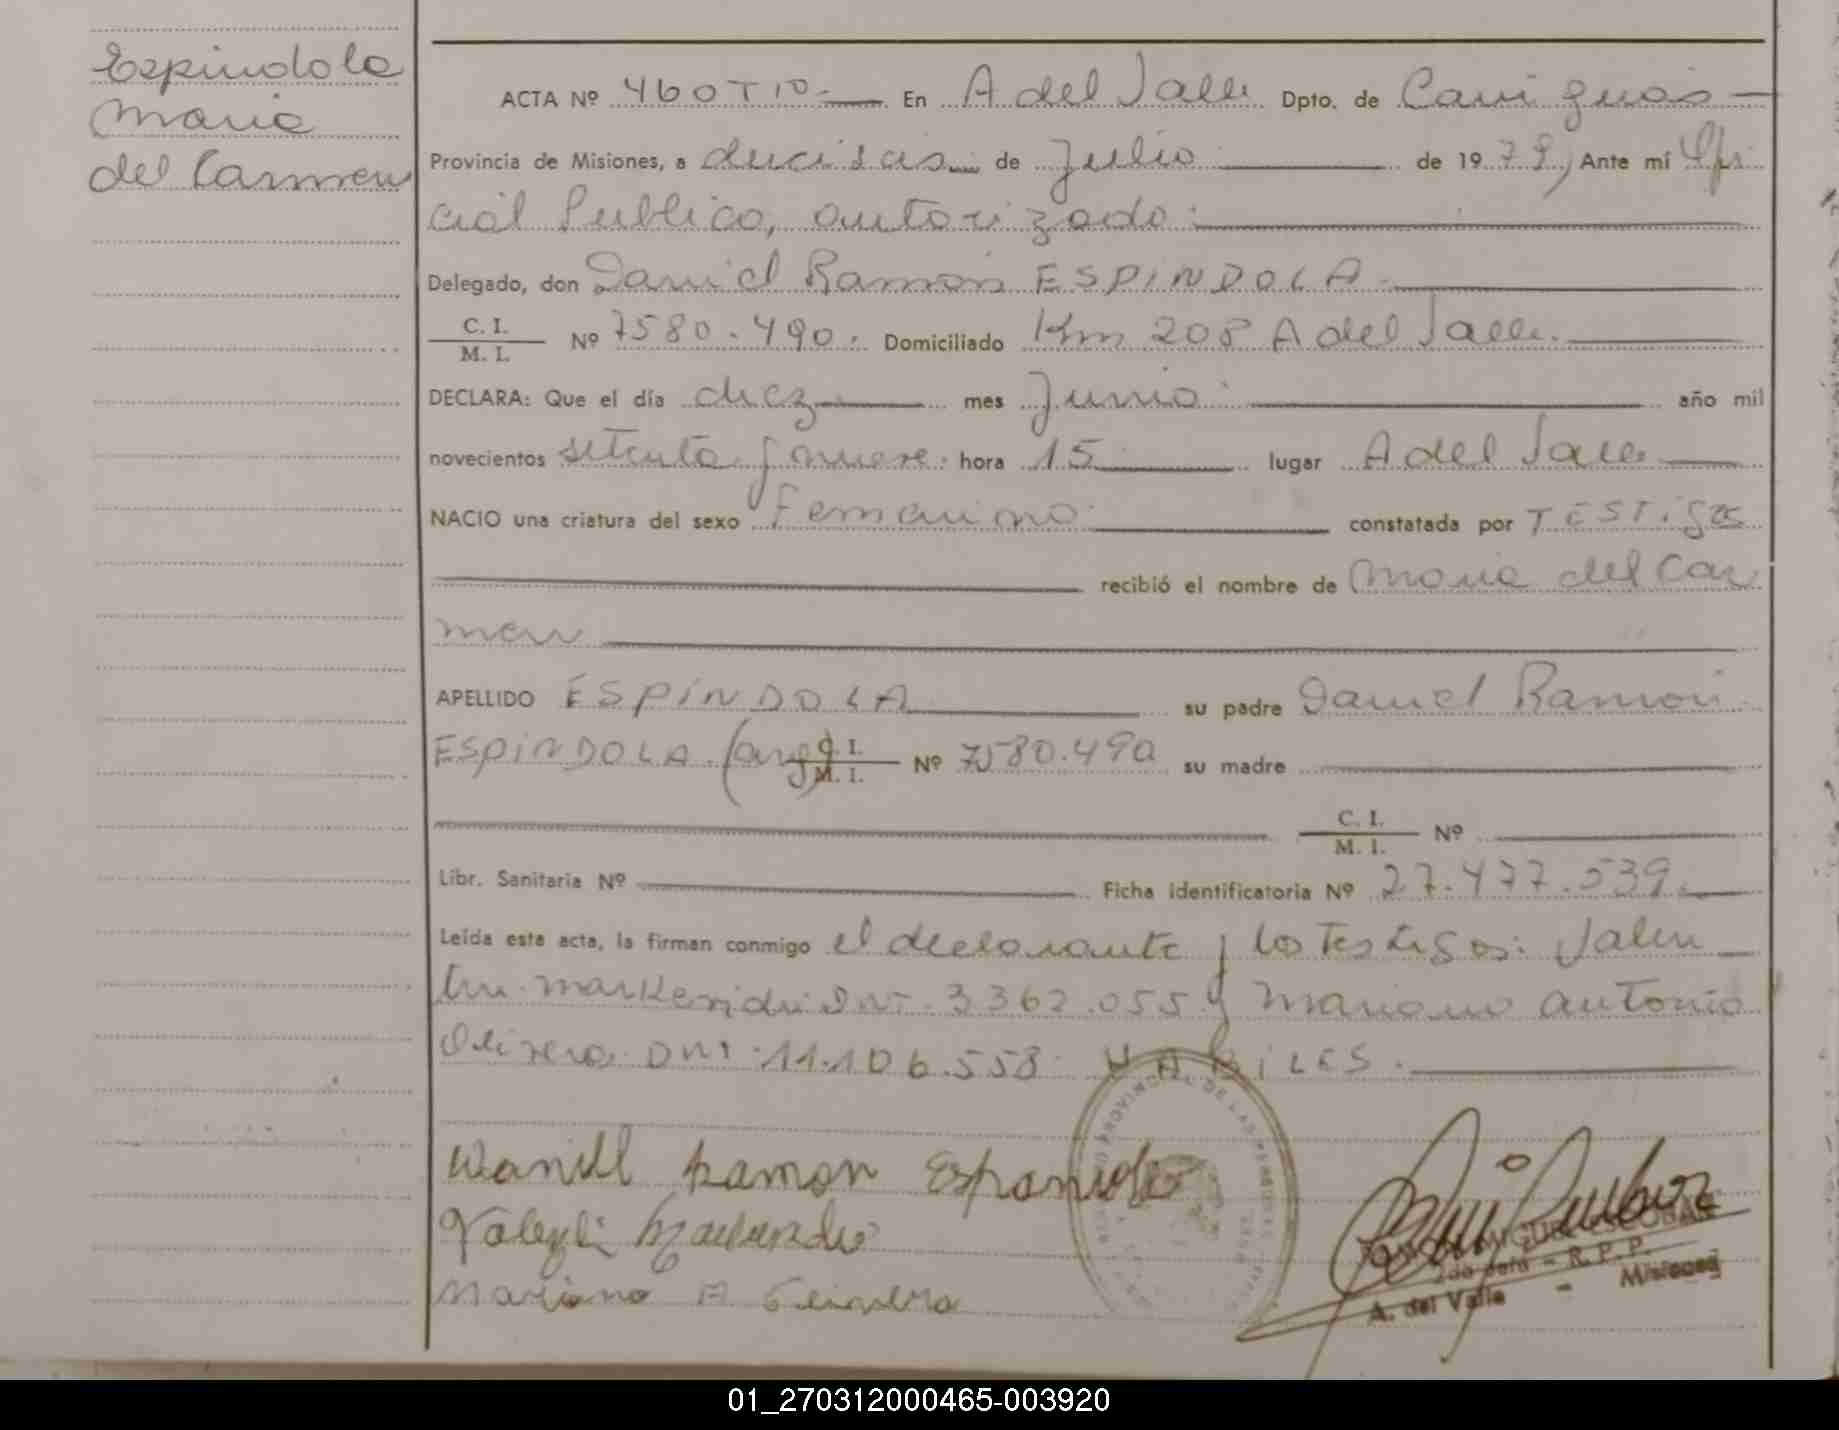 Espindola
Maria
del Carmen
ACTA Nº 460 T 10.- En A del Valle Dpto. de Cainguás -
Provincia de Misiones, a dieciseis de Julio de 1979, Ante mí Ofi
cial Publico, autorizado:
Delegado, don Daniel Ramón ESPINDOLA.
C. I.
M. I. Nº 7580.490. Domiciliado Km 208 A del Valle.
DECLARA: Que el día diez mes Junio año mil
novecientos setenta y nueve. hora 15 lugar A del Valle
NACIO una criatura del sexo Femenino constatada por TESTIGOS
recibió el nombre de Maria del Car
men
APELLIDO ESPINDOLA su padre Daniel Ramón
ESPINDOLA. (arg) C. I. M. I. Nº 7580.490 su madre
C. I.
M. I. Nº
Libr. Sanitaria Nº Ficha identificatoria Nº 27.477.539.
Leída esta acta, la firman conmigo el declarante y los Testigos: Valen
tin 3362.055 y Mariano Antonio
DNI. 11.106.553. HABILES.
Ramon
Mariano A
MIGUEL ESCOBAR
R.P.P.
A. del Valle - Misiones
01_270312000465-003920